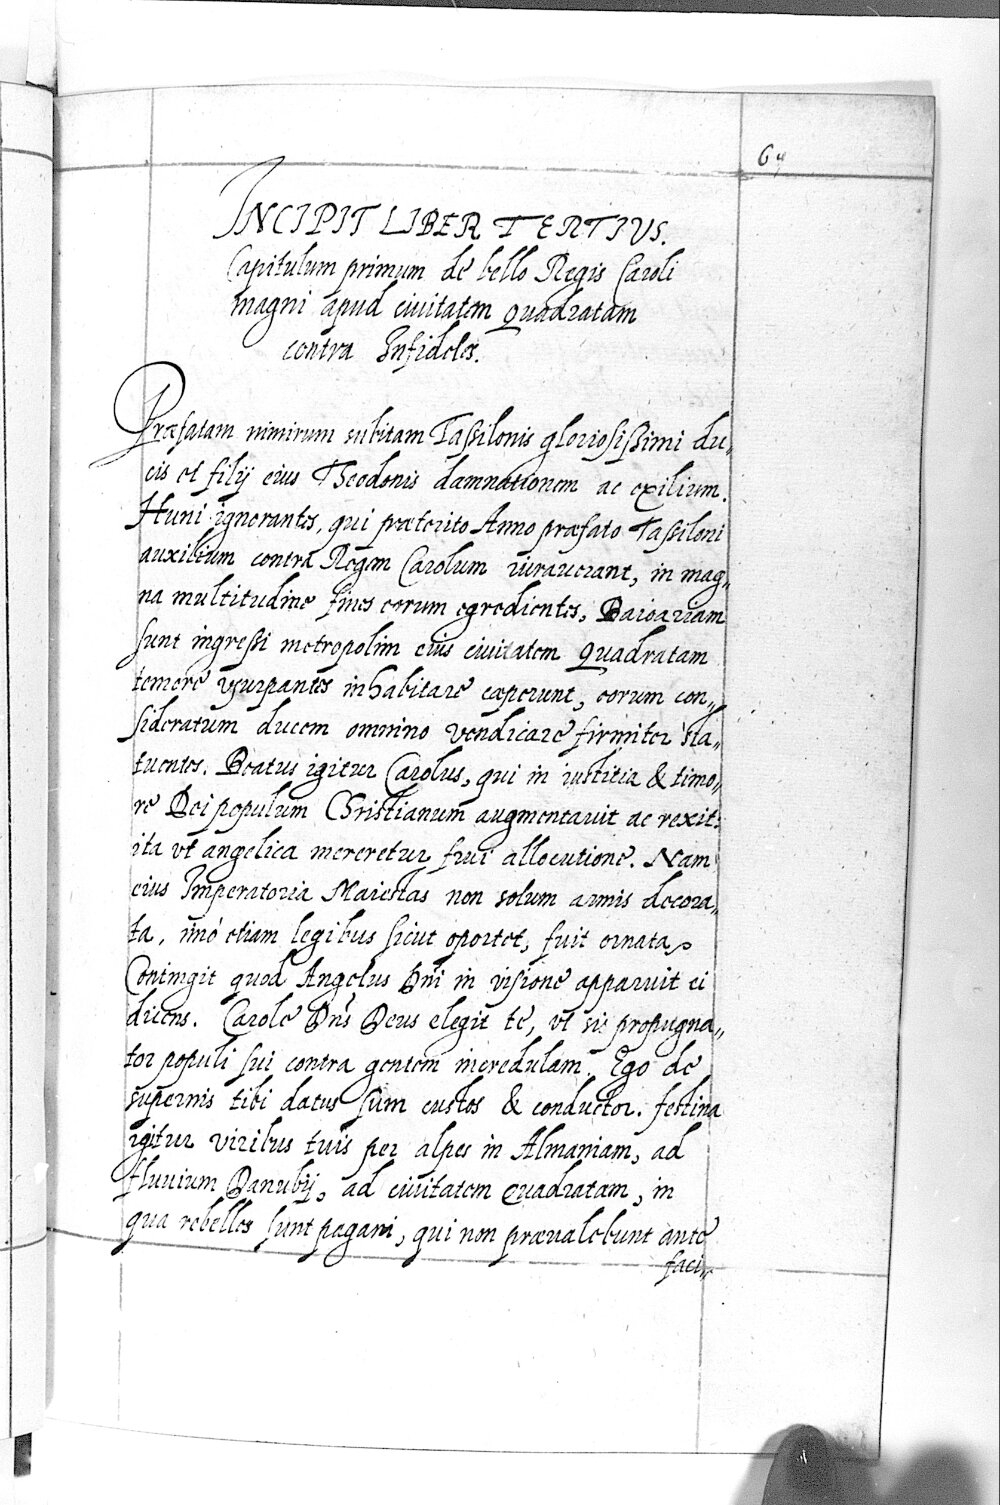 64
INCIPIT LIBER TERTIVS.
Capitulum primum de bello Regis Caroli
magni apud ciuitatem Quadratam
contra Infideles.
Præfatam nimirum subitam Tassilonis gloriosissimi du„
cis et filij eius Theodonis damnationem ac exilium.
Huni ignorantes, qui præterito Anno præfato Tassiloni
auxilium contra Regem Carolum iurauerant, in mag„
na multitudine fines eorum egredientes, Baioariam
sunt ingressi metropolim eius ciuitatem Quadratam
temere vsurpantes inhabitare cæperunt, eorum con„
sideratum ducem omnino vendicare firmiter sta„
tuentes. Beatus igitur Carolus, qui in iustitia & timo„
re Dei populum Christianum augmentauit ac rexit:
ita vt angelica mereretur frui allocutione. Nam
eius Imperatoria Maiestas non solum armis decora„
ta, imò etiam legibus sicut oportet, fuit ornata.
Contingit quod Angelus Dni in visione apparuit ei
dicens. Carole Dns Deus elegit te, vt sis propugna„
tor populi sui contra gentem incredulam. Ego de
supernis tibi datus sum custos & conductor. festina
igitur viribus tuis per alpes in Almaniam, ad
fluuium Danubij, ad ciuitatem Quadratam, in
qua rebelles sunt pagani, qui non præualebunt ante
faci„